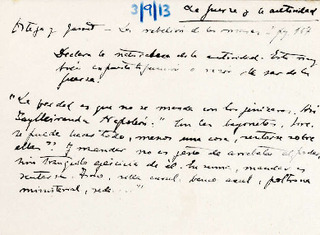 3/9/13
La fuerza y la autoridad
Ortega y Gasset - La rebelión de las masas, pg 157
Declara la naturaleza de la autoridad. Esta muy
bien
fuerza.
"La verdad es que no se manda con los jenízaros. Así
Talleyrand a Napoleón: "Con las bayonetas, Sire,
se puede hacer todo, menos una cosa, sentarse sobre
ellas". Y mandar no es gesto de arrebatar el poder,
sino tranquilo ejercicio de él. En suma, mandar es
sentarse. Trono, silla curul, banco azul, poltrona
ministerial, sede..."